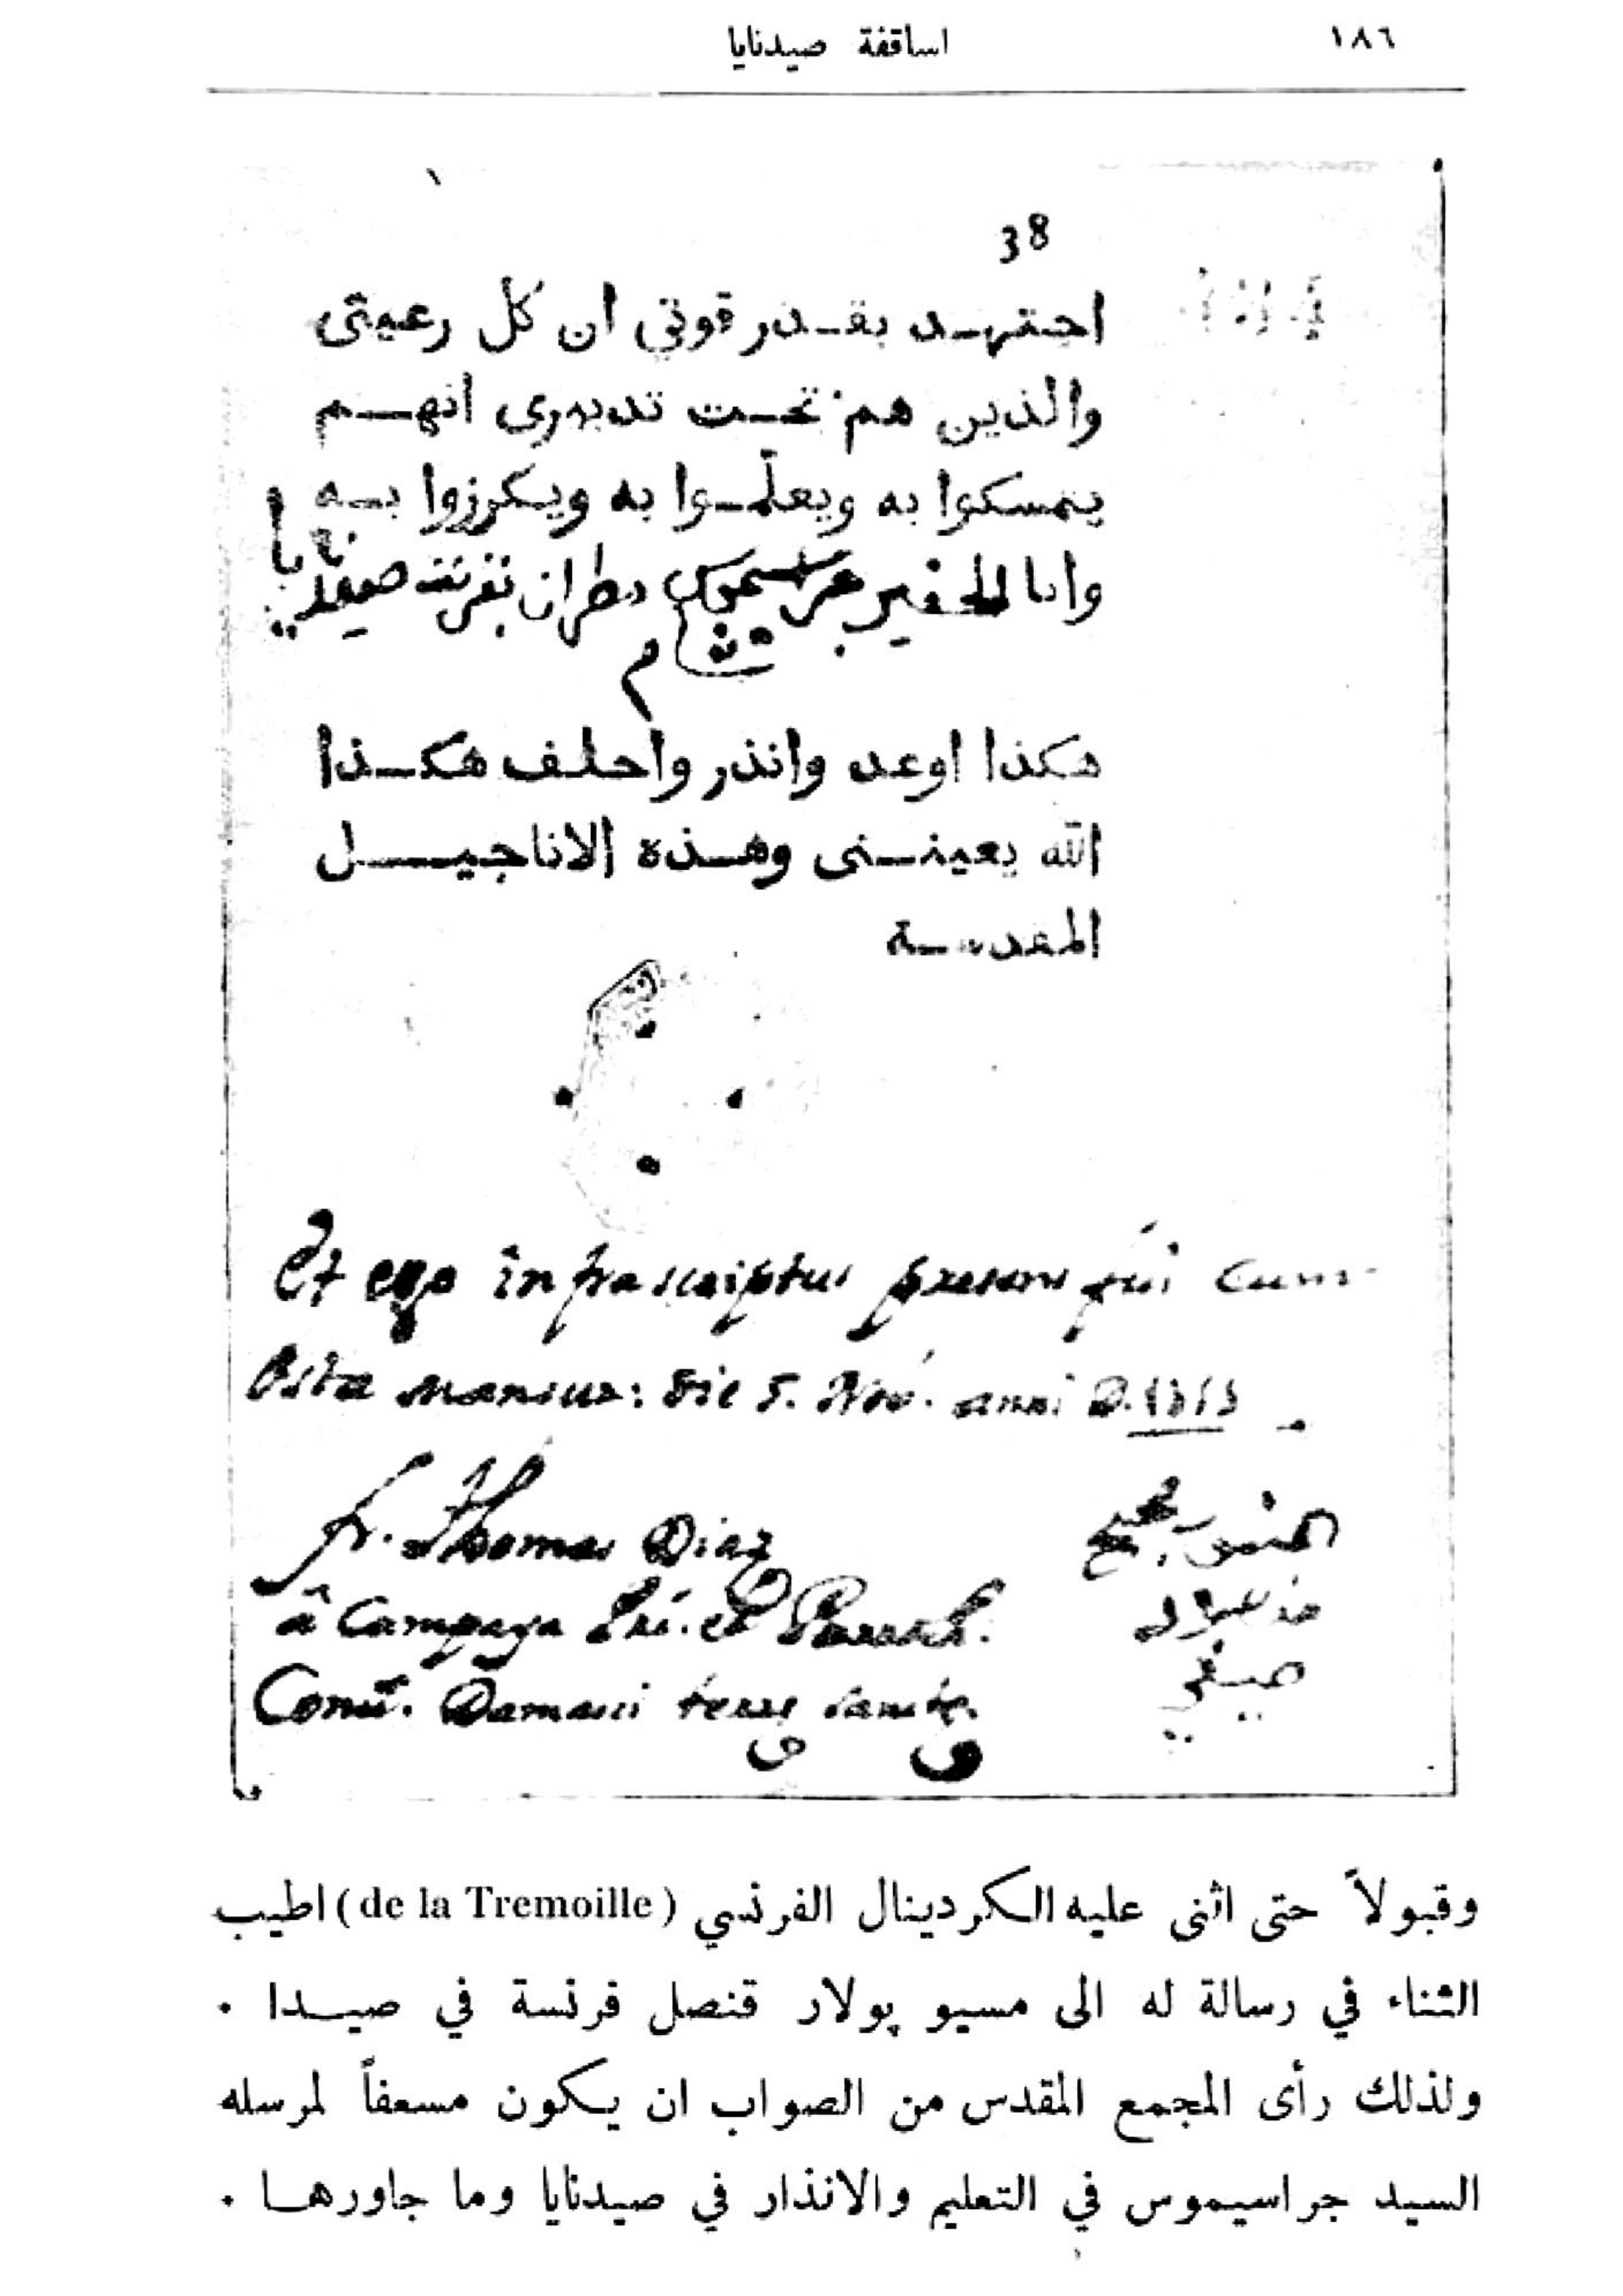 ١٨٦
اساقفة صيدنايا
38
اجتهد بقدر قوتي ان كل رعيتى
والذين هم تحت تدبيرى انهم
يمسكوا به ويعلّموا به ويكرزوا به
وانا الحقير جرسيموس مطران صيدنايا
هكذا اوعد وانذر واحلف هكذا
الله يعيننى وهذه الاناجيل
المقدسة
Et ego infrascriptus presens fui cum
ista manour: die 5. Nov. anni D.
fr. Thomas Diaz
â Campaya Pri. et Paroch.
Conv. Damasci terre sancte.
وقبولاً حتى اثنى عليه الكردينال الفرنسي (de la Tremoille) اطيب
الثناء في رسالة له الى مسيو پولار قنصل فرنسة في صيدا .
ولذلك رأى المجمع المقدس من الصواب ان يكون مسعفاً لمرسله
السيد جراسيموس في التعليم والانذار في صيدنايا وما جاورها .